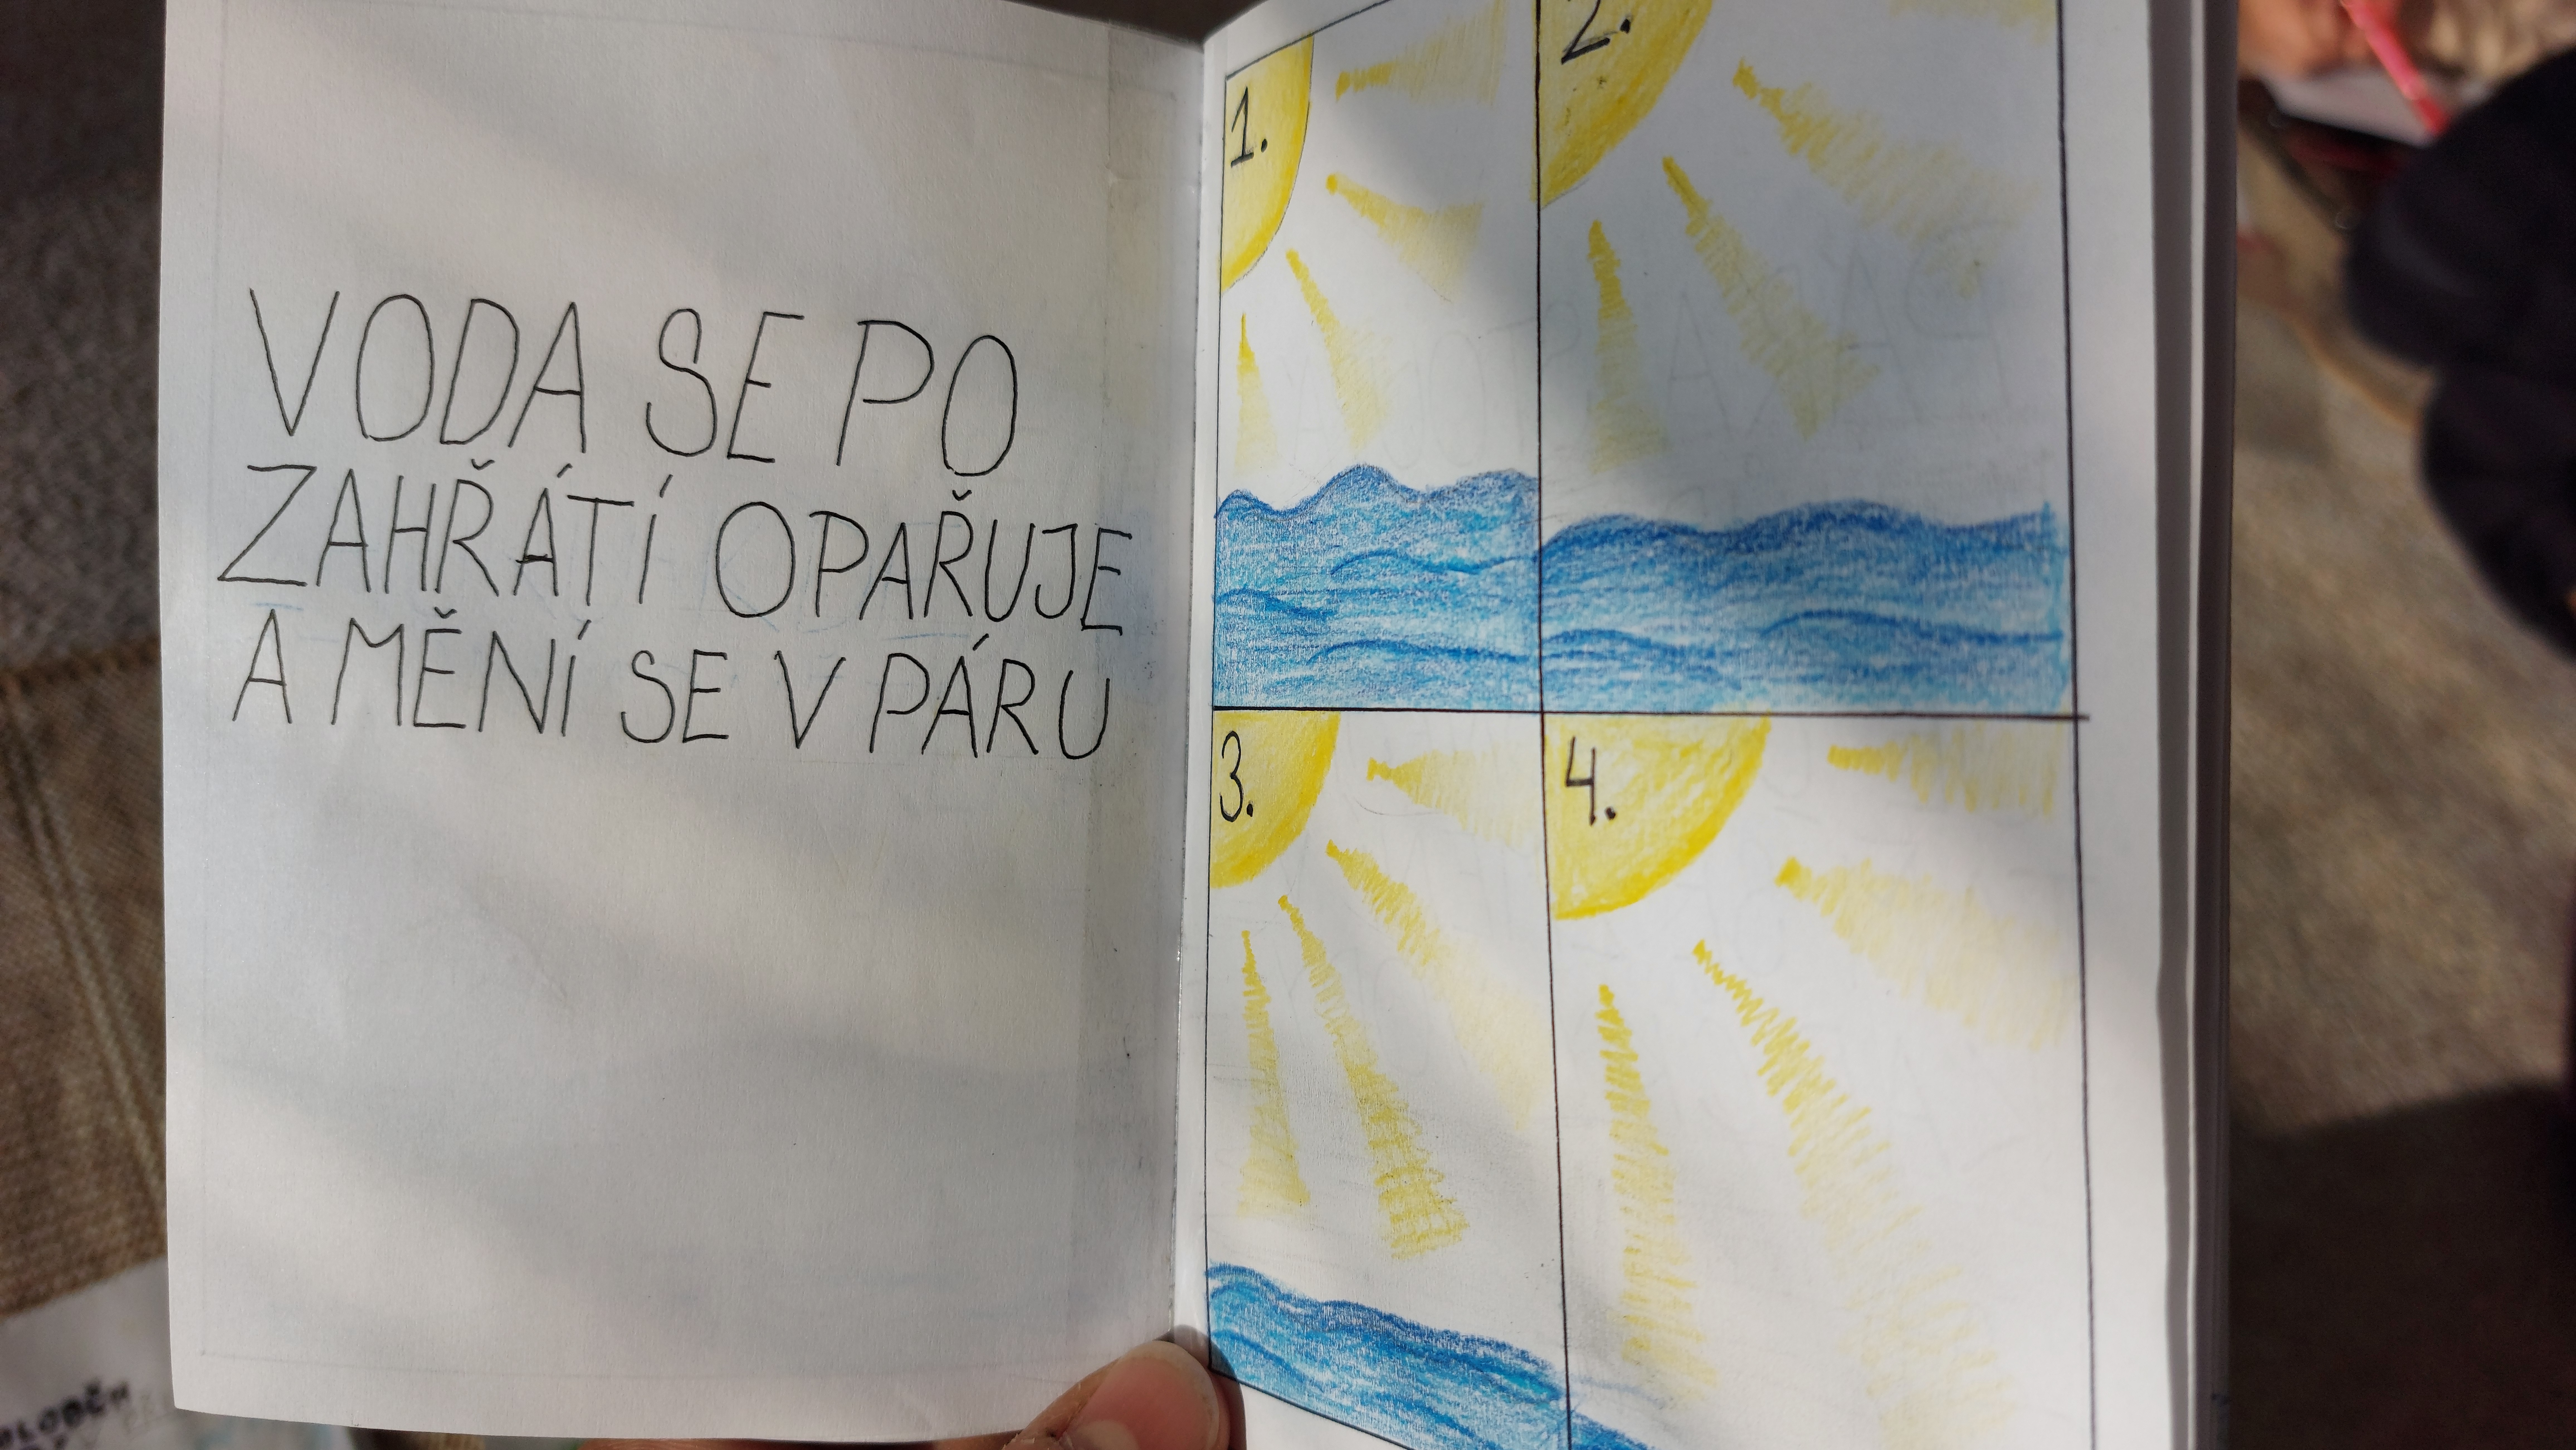 VODA SE PO
ZAHŘÁTÍ OPAŘUJE
A MĚNÍ SE V PÁRU
1.
2.
3.
4.